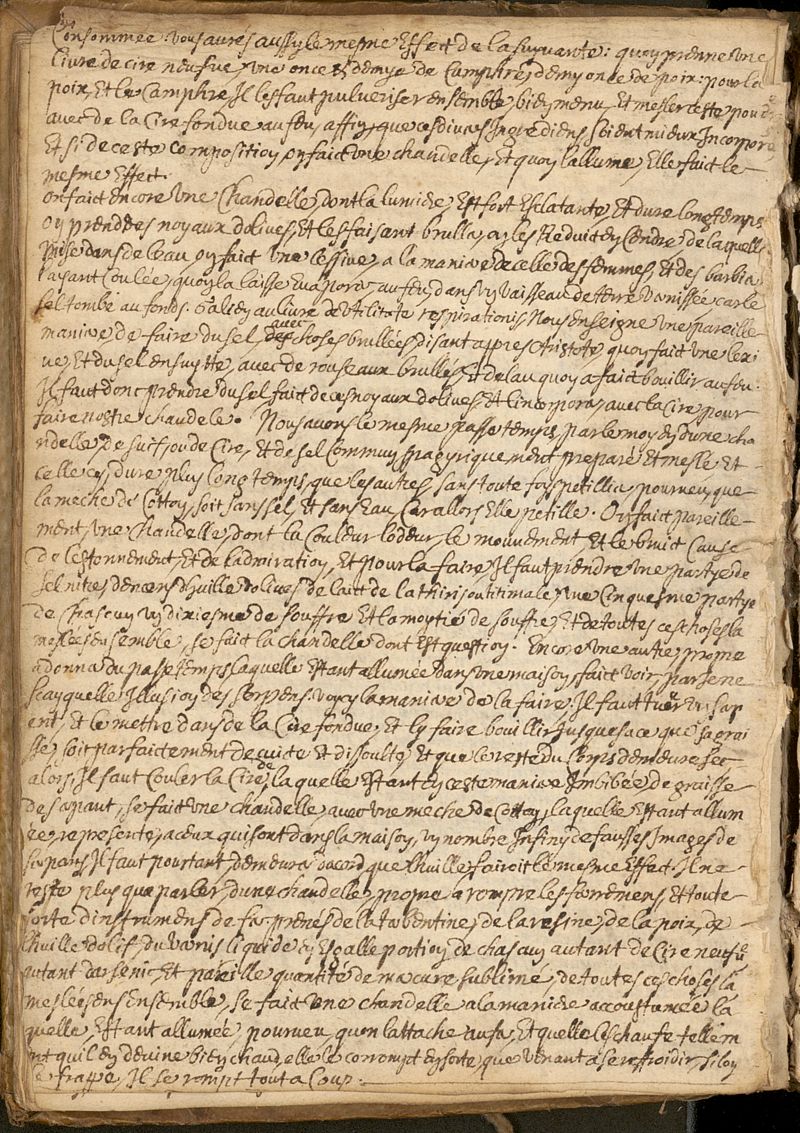 Consommée vous aures aussy le mesme Effect de la suyuante: quoy prenne Vne
liure de cire neufue, Vne once & demye de Camphre, demy once de poix: pour la
poix, Et le Camphre Il les faut pulueriser ensemble bien menu, Et mesler ceste poudre
auec de la Cire fondue au feu, affin que ces diuers Ingrediens soient mieux Incorporé
Et si de ceste Composition on faict Vne chandelle, Et quoy l'allume, Elle faict le
mesme Effect.
On faict encore Vne Chandelle, dont la lumiere Est fort Esclatante, Et dure long temps
On prend des noyaux dolives, Et les faisant bruller, on les Reduict en Cendre, de laquelle
mise dans de leau, on faict Vne Lessiue, a la maniere de celle des femmes, Et des barbiers
layant Coulée, quoy la laisse Euaporer au feu, dans vn Vaisseau de terre Vernissée, car le
sel tombe au fonds. Galien au liure de Vtilitate respirationis Nous enseigne Vne pareille
maniere, de faire du sel, auec choses brullées, disant appres Aristote, quoy faict Vne lexi
ue, Et du sel en suytte, auec de rouseaux brullés, Et de lau quoy a faict bouillir au feu.
Il faut donc prendre du sel faict de ces noyaux dolives, Et lincorporer auec la Cire, pour
faire nostre chandele. Nous auons le mesme passe temps, par le moyen dune cha
ndelle de suif, ou de Cire, Et de sel Commun spagyriquement preparé Et meslé, Et
celle cy, dure plus Long temps que les autres, sans toute foys petiller, pourueu que
la meche de Cotton, soit sans sel, Et sans Eau, Car allors Elle petille. On faict pareille-
ment, Vne Chandelle, dont la Couleur lodeur, le mouuement, Et le bruict Cause
de lestonnement, Et de ladmiration, Et pour la faire, Il faut prendre Vne partye de
sel nitre, dencens, dhuille dolives, de laict de la thirisoutitimale, Vne Cinquesme partye
de Chascun vn dixiesme de souffre, Et la moytié de souffre, Et de toutes ces choses la
meslées ensemble, se faict la chandelle dont Est question. Encore Vne autre, prome
a donner du passe temps, laquelle Estant allumée dans vne maison, faict voir, par Je ne
scay quelle Illusion, des serpens. voycy la maniere de la faire: Il faut tuer vn serp
ent, Et le mettre dans de la Cire fondue, Et ly faire bouillir Jusques a ce que sa grai
sse, soit parfaictement decuicte Et dissoulte, Et que le reste du Corps demeure sec
alors, Il faut Couler la Cire, de laquelle Estant en ceste maniere Imbibée, de graisse
de serpant, se faict Vne chandelle, auec vne meche de Cotton, laquelle Estant allum
ée, represente, a ceux qui sont dans la maison, vn nombre Infiny de fausses Images de
serpans, Il faut pourtant, demeurer dacord que lhuille fairoit le mesme Effect. Il ne
reste plus qua parler, dune chandelle, propre a rompre les ferremens, Et toute
sorte dinstrumens de fer. prenes de la terbentine, de la resine, de la poix, de
lhuille dolif, du Vernis liquide en Esgalle portion, de chascun autant de Cire neufue
autant darsenic, Et pareille quantité de mercure sublimé, de toutes ces choses la
meslées ensemble, se faict Vne chandelle a la maniere accoustumée, la
quelle, Estant allumée, pourueu quon lattache au fer, Et quelle leschaufe tellem
ent quil en deuine bien chaud, elle le corrompt de sorte, que venant a se reffroidir, si lon
le frappe, Il se rompt tout a Coup.